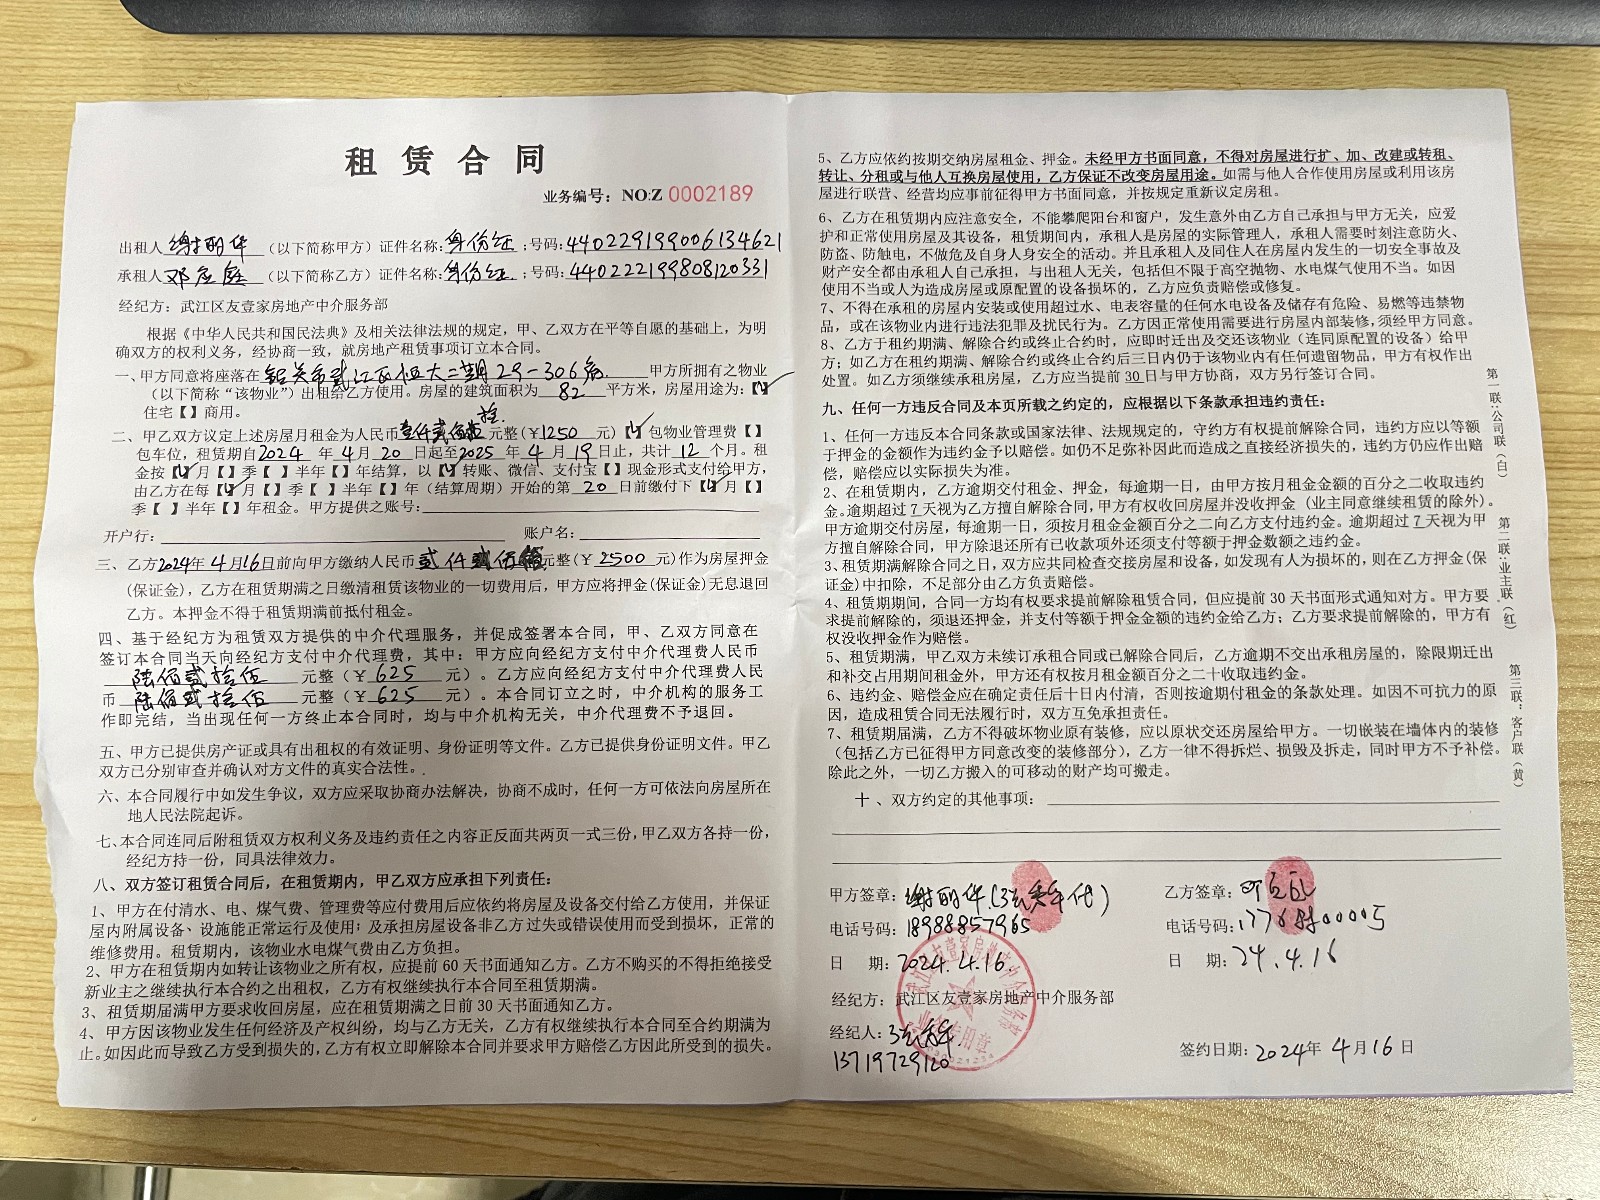 租赁合同
业务编号：NO:Z 0002189
出租人谢丽华（以下简称甲方）证件名称:身份证;号码:440229199006134621
承租人邓应庭（以下简称乙方）证件名称:身份证;号码:440222199808120331
经纪方：武江区友壹家房地产中介服务部
根据《中华人民共和国民法典》及相关法律法规的规定，甲、乙双方在平等自愿的基础上，为明
确双方的权利义务，经协商一致，就房地产租赁事项订立本合同。
一、甲方同意将座落在 韶关市武江区恒大二期29-306房 甲方所拥有之物业
（以下简称“该物业”）出租给乙方使用。房屋的建筑面积为 82 平方米，房屋用途为:【√】
住宅【 】商用。
拾
二、甲乙双方议定上述房屋月租金为人民币壹仟贰佰伍元整(￥1250 元)【√】包物业管理费【 】
包车位，租赁期自2024 年 4月 20 日起至2025 年 4 月 19日止，共计 12 个月。租
金按【√】月【 】季【 】半年【 】年结算，以【√】转账、微信、支付宝【 】现金形式支付给甲方，
由乙方在每【√】月【 】季【 】半年【 】年（结算周期）开始的第 20 日前缴付下【√】月【 】
季【 】半年【 】年租金。甲方提供之账号:
开户行: 账户名:
三、乙方2024年 4月16日前向甲方缴纳人民币贰仟伍佰元整(￥ 2500 元)作为房屋押金
(保证金)，乙方在租赁期满之日缴清租赁该物业的一切费用后，甲方应将押金(保证金)无息退回
乙方。本押金不得于租赁期满前抵付租金。
四、基于经纪方为租赁双方提供的中介代理服务，并促成签署本合同，甲、乙双方同意在
签订本合同当天向经纪方支付中介代理费，其中：甲方应向经纪方支付中介代理费人民币
陆佰贰拾伍 元整（￥ 625 元）。乙方应向经纪方支付中介代理费人民
币 陆佰贰拾伍 元整（￥ 625 元）。本合同订立之时，中介机构的服务工
作即完结，当出现任何一方终止本合同时，均与中介机构无关，中介代理费不予退回。
五、甲方已提供房产证或具有出租权的有效证明、身份证明等文件。乙方已提供身份证明文件。甲乙
双方已分别审查并确认对方文件的真实合法性。
六、本合同履行中如发生争议，双方应采取协商办法解决，协商不成时，任何一方可依法向房屋所在
地人民法院起诉。
七、本合同连同后附租赁双方权利义务及违约责任之内容正反面共两页一式三份，甲乙双方各持一份，
经纪方持一份，同具法律效力。
八、双方签订租赁合同后，在租赁期内，甲乙双方应承担下列责任：
1、甲方在付清水、电、煤气费、管理费等应付费用后应依约将房屋及设备交付给乙方使用，并保证
屋内附属设备、设施能正常运行及使用；及承担房屋设备非乙方过失或错误使用而受到损坏，正常的
维修费用。租赁期内，该物业水电煤气费由乙方负担。
2、甲方在租赁期内如转让该物业之所有权，应提前 60 天书面通知乙方。乙方不购买的不得拒绝接受
新业主之继续执行本合约之出租权，乙方有权继续执行本合同至租赁期满。
3、租赁期届满甲方要求收回房屋，应在租赁期满之日前 30 天书面通知乙方。
4、甲方因该物业发生任何经济及产权纠纷，均与乙方无关，乙方有权继续执行本合同至合约期满为
止。如因此而导致乙方受到损失的，乙方有权立即解除本合同并要求甲方赔偿乙方因此所受到的损失。
5、乙方应依约按期交纳房屋租金、押金。未经甲方书面同意，不得对房屋进行扩、加、改建或转租、
转让、分租或与他人互换房屋使用，乙方保证不改变房屋用途。如需与他人合作使用房屋或利用该房
屋进行联营、经营均应事前征得甲方书面同意，并按规定重新议定房租。
6、乙方在租赁期内应注意安全，不能攀爬阳台和窗户，发生意外由乙方自己承担与甲方无关，应爱
护和正常使用房屋及其设备，租赁期间内，承租人是房屋的实际管理人，承租人需要时刻注意防火、
防盗、防触电，不做危及自身人身安全的活动。并且承租人及同住人在房屋内发生的一切安全事故及
财产安全都由承租人自己承担，与出租人无关，包括但不限于高空抛物、水电煤气使用不当。如因
使用不当或人为造成房屋或原配置的设备损坏的，乙方应负责赔偿或修复。
7、不得在承租的房屋内安装或使用超过水、电表容量的任何水电设备及储存有危险、易燃等违禁物
品，或在该物业内进行违法犯罪及扰民行为。乙方因正常使用需要进行房屋内部装修,须经甲方同意。
8、乙方于租约期满、解除合约或终止合约时，应即时迁出及交还该物业（连同原配置的设备）给甲
方；如乙方在租约期满、解除合约或终止合约后三日内仍于该物业内有任何遗留物品，甲方有权作出
处置。如乙方须继续承租房屋，乙方应当提前 30 日与甲方协商，双方另行签订合同。
九、任何一方违反合同及本页所载之约定的，应根据以下条款承担违约责任：
1、任何一方违反本合同条款或国家法律、法规规定的，守约方有权提前解除合同，违约方应以等额
于押金的金额作为违约金予以赔偿。如仍不足弥补因此而造成之直接经济损失的，违约方仍应作出赔
偿，赔偿应以实际损失为准。
2、在租赁期内，乙方逾期交付租金、押金，每逾期一日，由甲方按月租金金额的百分之二收取违约
金。逾期超过 7 天视为乙方擅自解除合同,甲方有权收回房屋并没收押金（业主同意继续租赁的除外）。
甲方逾期交付房屋，每逾期一日，须按月租金金额百分之二向乙方支付违约金。逾期超过 7 天视为甲
方擅自解除合同，甲方除退还所有已收款项外还须支付等额于押金数额之违约金。
3、租赁期满解除合同之日，双方应共同检查交接房屋和设备，如发现有人为损坏的，则在乙方押金(保
证金)中扣除，不足部分由乙方负责赔偿。
4、租赁期期间，合同一方均有权要求提前解除租赁合同，但应提前 30 天书面形式通知对方。甲方要
求提前解除的，须退还押金，并支付等额于押金金额的违约金给乙方；乙方要求提前解除的，甲方有
权没收押金作为赔偿。
5、租赁期满，甲甲乙双方未续订承租合同或已解除合同后，乙方逾期不交出承租房屋的，除限期迁出
和补交占用期间租金外，甲方还有权按月租金额百分之二十收取违约金。
6、违约金、赔偿金应在确定责任后十日内付清，否则按逾期付租金的条款处理。如因不可抗力的原
因，造成租赁合同无法履行时，双方互免承担责任。
7、租赁期届满，乙方不得破坏物业原有装修，应以原状交还房屋给甲方。一切嵌装在墙体内的装修
（包括乙方已征得甲方同意改变的装修部分），乙方一律不得拆烂、损毁及拆走，同时甲方不予补偿。
除此之外，一切乙方搬入的可移动的财产均可搬走。
十、双方约定的其他事项：
第一联:公司联（白）
第二联:业主联（红）
第三联：客户联（黄）
甲方签章：谢丽华 代）
乙方签章：
电话号码:18988857965
电话号码:
日 期:2024.4.16.
日 期:24.4.16
经纪方：武江区友壹家房地产中介服务部
经纪人:
13719729120
签约日期: 2024年 4月16日